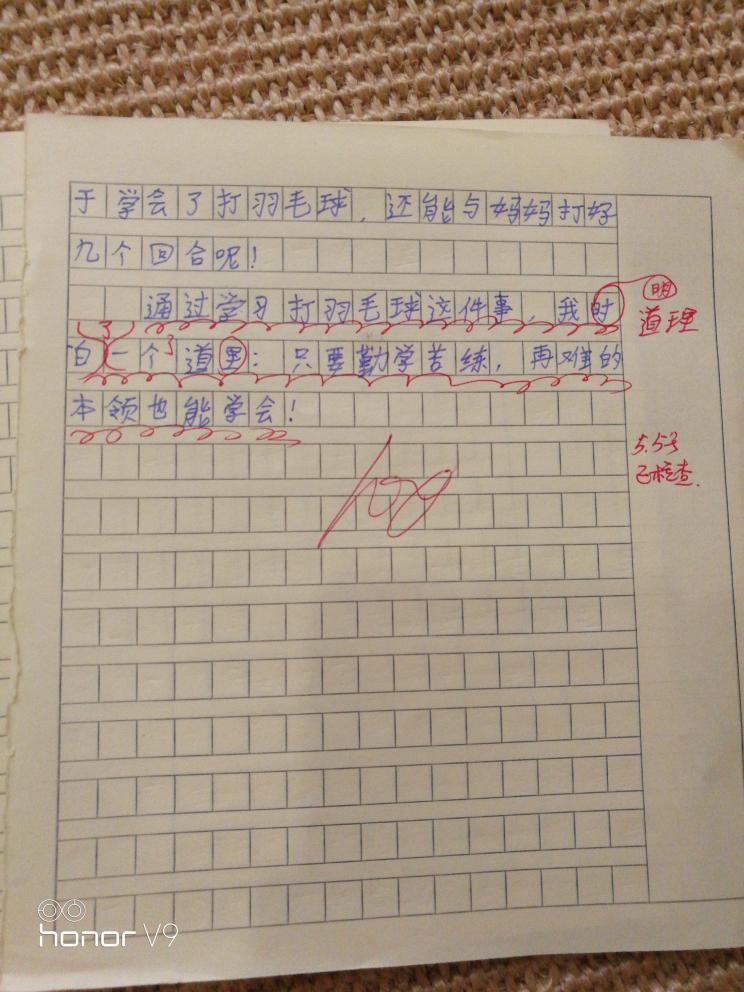 于学会了打羽毛球，还能与妈妈打好
九个回合呢！
通过学习打羽毛球这件事，我时
明
道理
白了一个道里：只要勤学苦练，再难的
本领也能学会！
5.5号
已核查.
100
honor V9